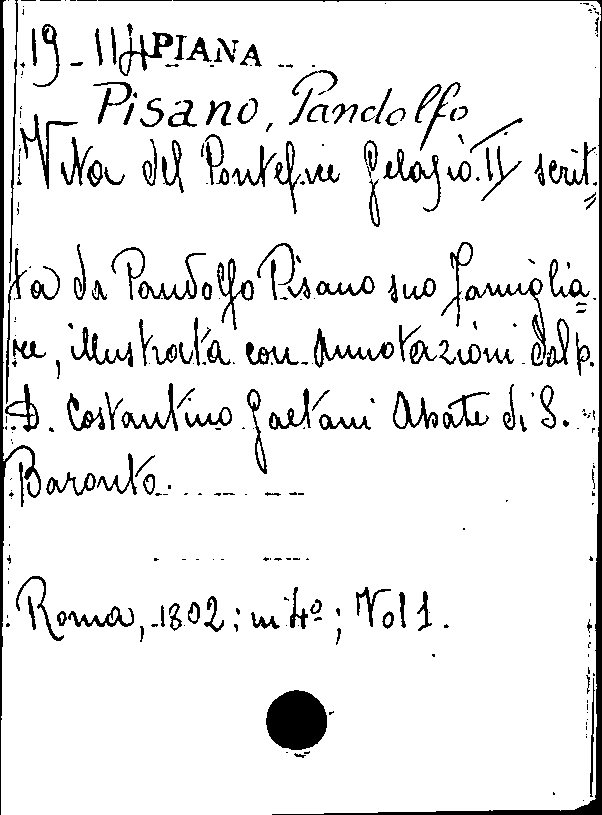 19-114 PIANA
Pisano, Pandolfo
Vita del Pontefice Gelasio II scrit=
ta da Pandolfo Pisano suo famiglia=
re, illustrata con Annotazioni dal p.
D. Costantino Gaetani Abate di S.
Baronto.
Roma, 1802: in 4º; Vol 1.